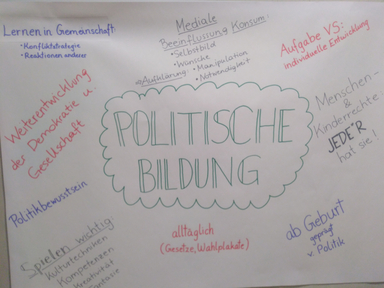 Lernen in Gemeinschaft
• Konfliktstrategie
• Reaktionen anderer
Mediale
Beeinflussung Konsum:
• Selbstbild
• Wünsche
• Manipulation
Aufklärung
• Notwendigkeit
Aufgabe VS:
individuelle Entwicklung
Weiterentwicklung
der Demokratie u.
Gesellschaft
Menschen-
&
Kinderrechte
JEDE*R
hat sie!
POLITISCHE
BILDUNG
Politikbewusstsein
Spielen wichtig
Kulturtechniken
Kompetenzen
Kreativität
alltäglich
(Gesetze, Wahlplakate)
ab Geburt
geprägt
v. Politik